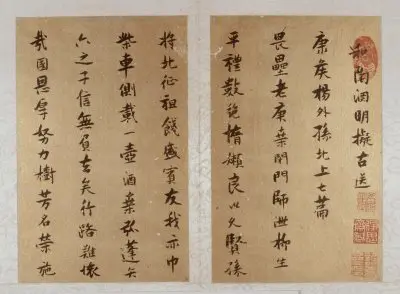 和陶淵明擬古送
康侯楊外孫北上七篇
畏壘老庚桑閉門師柳生
平禮數絕惰嬾良以久賢孫
將北征祖餞盛賓友我亦巾
柴車側載一壺酒桑弧蓬矢
六之子信無負去矣行路難懷
哉國恩厚努力樹芳名榮施